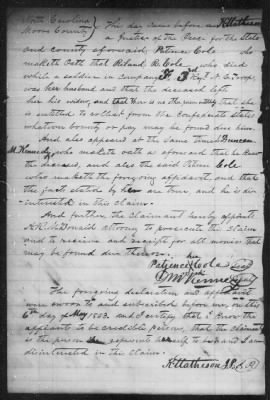 North Carolina
Moore County } This day came before me K Matheson
a Justice of the Peace for the State
and county aforesaid, Patience Cole who
maketh Oath that Roland R. Cole, who died
while a soldier in company H. 3rd Regt N. C. Troops
was her husband and that the deceased left
her his widow, and that there is no
is entitled to collect from the Confederate States
whatever bounty or pay may be found due him.
And also appeared at the same time Duncan
McKennedy who maketh oath as aforesaid that he knew
the deceased, and also the said Patience Cole
who maketh the foregoing affidavit, and that
the facts stated by her are true, and he is dis-
interested in this claim.
And further the claimant hereby appoints
A. R. McDonald attorney to prosecute the claim
and to receive and receipt for all monies that
may be found due thereon. her
Patience Cole
mark
D McKennedy
The foregoing declaration and
were sworn to and subscribed before me, on this
6th day of May 1863. and I certify, that I know the
to be credible persons, that the claimant
is the person she represents herself to be and I am
disinterested in the claim.
K Matheson J. P.